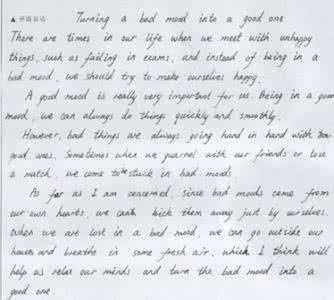 Turning a bad mood into a good one
There are times in our life when we meet with unhappy
things, such as failing in exams, and instead of being in a
bad mood, we should try to make ourselves happy.
A good mood is really very important for us. Being in a good
mood, we can always do things quickly and smoothly.
However, bad things are always going hand in hand with
good ones. Sometimes when we quarrel with our friends or lose
a match, we come to be stuck in bad moods
As for as I am concerned, since bad moods come from
our own hearts, we can kick them away just by ourselves.
when we are lost in a bad mood, we can go outside our
houses and breathe in some fresh air, which I think will
help us relax our minds and turn the bad mood into a
good one.